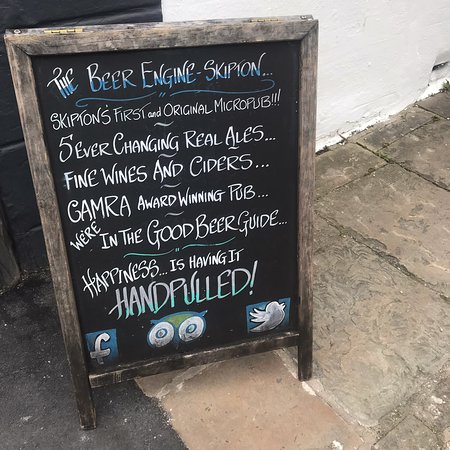 THE BEER ENGINE - SKIPTON...
SKIPTON'S FIRST and ORIGINAL MICROPUB!!!
5 EVER CHANGING REAL ALES...
FINE WINES AND CIDERS...
CAMRA AWARD WINNING PUB...
WE'RE IN THE GOOD BEER GUIDE...
HAPPINESS... IS HAVING IT
HANDPULLED!
f